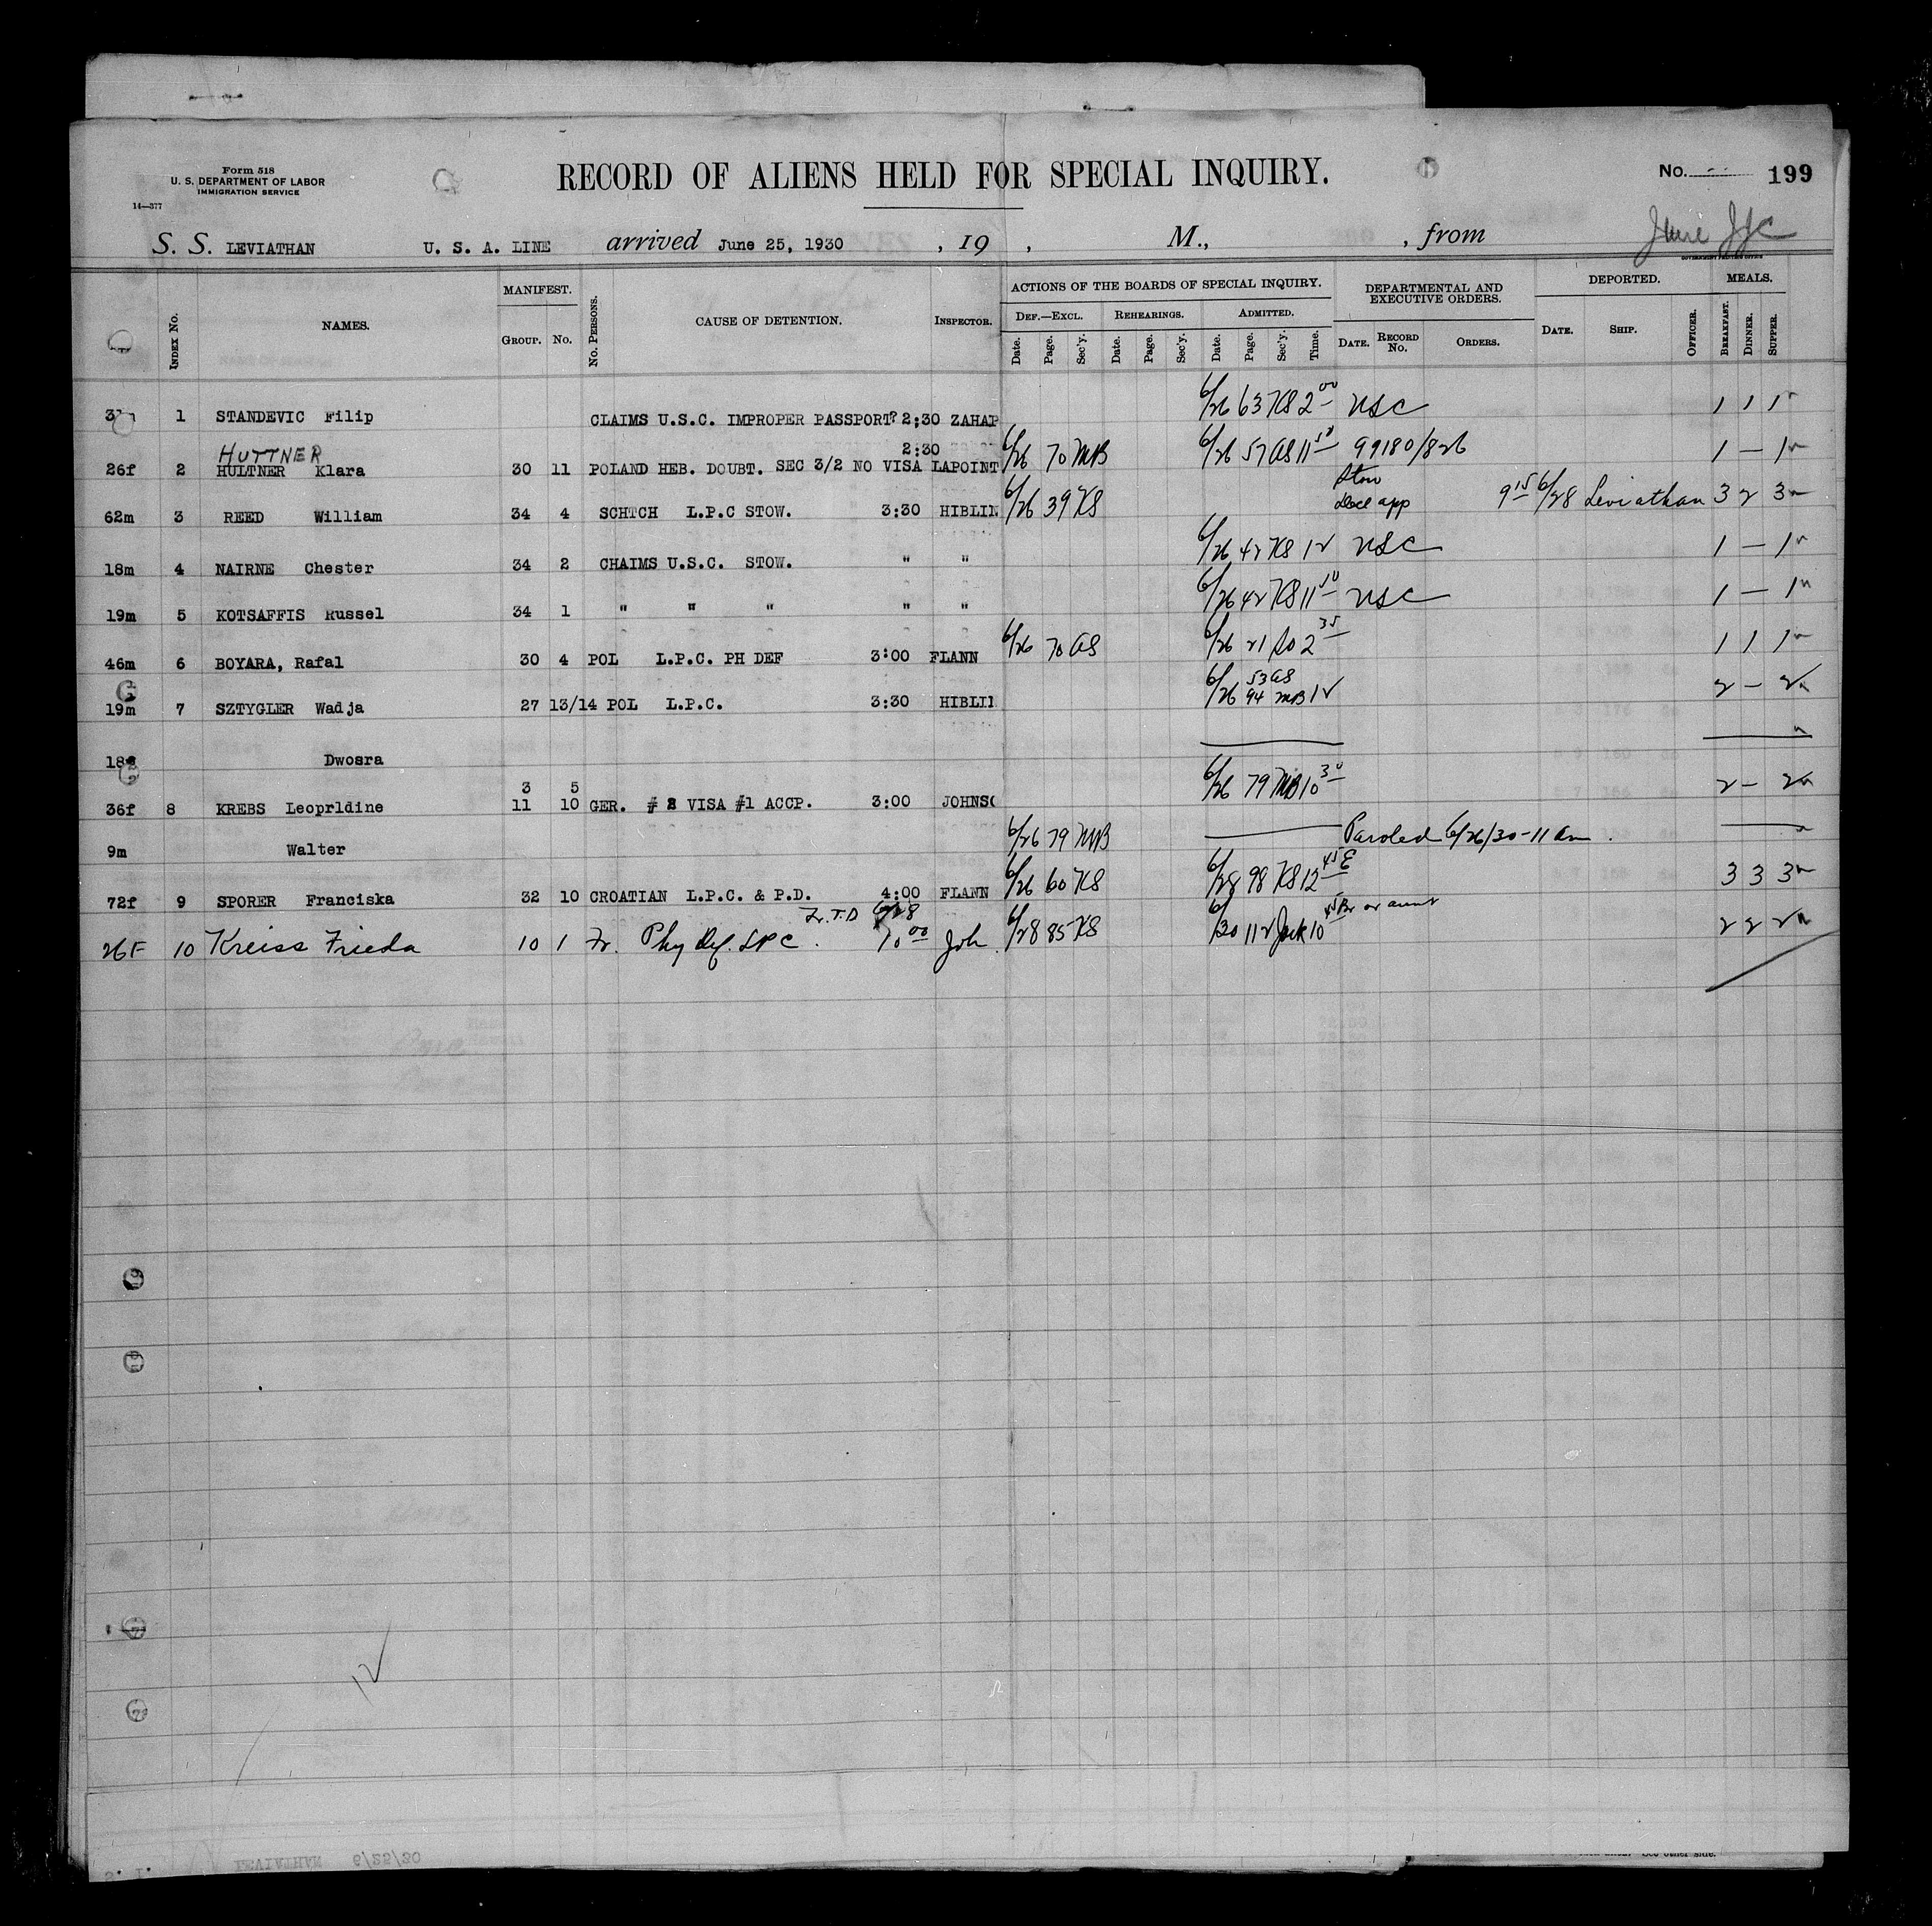 Form 518
U. S. DEPARTMENT OF LABOR
IMMIGRATION SERVICE
14—377
RECORD OF ALIENS HELD FOR SPECIAL INQUIRY.
No. 199
S. S. LEVIATHAN U. S. A. LINE arrived June 25, 1930 , 19 , M., , from
GOVERNMENT PRINTING OFFICE
INDEX No. NAMES. MANIFEST. GROUP. NO. No. PERSONS. CAUSE OF DETENTION. INSPECTOR.
ACTIONS OF THE BOARDS OF SPECIAL INQUIRY. DEPARTMENTAL AND EXECUTIVE ORDERS. DEPORTED. MEALS.
DEF.—EXCL. REHEARINGS. ADMITTED.
Date. Page. Sec'y. Date. Page. Sec'y. Date. Page. Sec'y. Time. DATE. RECORD No. ORDERS. DATE. SHIP. OFFICER. BREAKFAST. DINNER. SUPPER.
1 STANDEVIC Filip CLAIMS U.S.C. IMPROPER PASSPORT? 2:30 ZAHAR 6/26 63 KS 2 00 USC 1 1 1
HUTTNER 2:30
26f 2 HULTNER Klara 30 11 POLAND HEB. DOUBT. SEC 3/2 NO VISA LAPOINT 6/26 70 MB 6/26 57 GS 11 50 99180/826 1 — 1
Stow
62m 3 REED William 34 4 SCHTCH L.P.C STOW. 3:30 HIBLIN 6/26 39 KS app 9 15 6/28 Leviathan 3 2 3
18m 4 NAIRNE Chester 34 2 CHAIMS U.S.C. STOW. " " 6/26 42 KS 12 USC 1 — 1
19m 5 KOTSAFFIS Russel 34 1 " " " " " 6/26 42 KS 11 50 USC 1 — 1
46m 6 BOYARA, Rafal 30 4 POL L.P.C. PH DEF 3:00 FLANN 6/26 70 GS 6/26 21 2 35 1 1 1
53 GS
19m 7 SZTYGLER Wadja 27 13/14 POL L.P.C. 3:30 HIBLIN 6/26 94 MB 12 2 — 2
18f Dwosra
3 5
36f 8 KREBS Leoprldine 11 10 GER. # 2 VISA #1 ACCP. 3:00 JOHNSO 6/26 79 MB 10 30 2 — 2
9m Walter 6/26 79 MB Paroled 6/26/30 - 11 am.
72f 9 SPORER Franciska 32 10 CROATIAN L.P.C. & P.D. 4:00 FLANN 6/26 60 KS 6/28 98 KS 12 45 E 3 3 3
Fr. T.D 6/28
26F 10 Kreiss Frieda 10 1 Fr. Phy Def. LPC. 10 00 Joh. 6/28 85 KS 6/30 112 10 45 Br or aunt 2 2 2
12
LEVIATHAN 6/25/30
See other side.